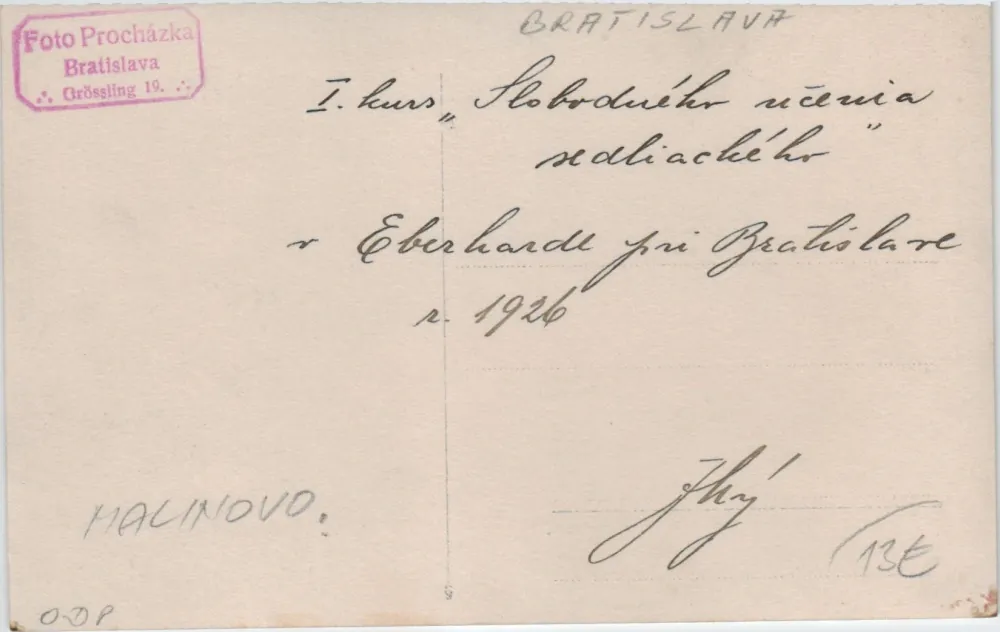 BRATISLAVA
Foto Procházka
Bratislava
Grössling 19.
I. kurs „Slobodného učenia
sedliackého"
v Eberharde pri Bratislave
r. 1926
MALINOVO.
13€
O-DP